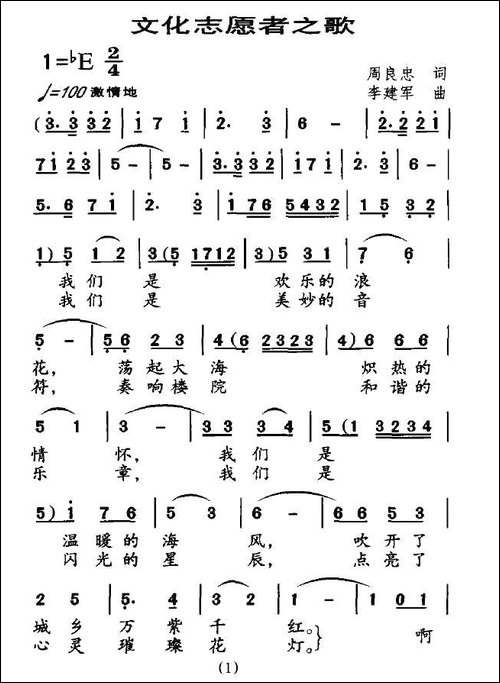 文化志愿者之歌
1=♭E 2/4
周良忠 词
♩=100 激情地 李建军 曲
(3. 3 3 2 | 1 7 1 | 2. 3 | 6 - | 2. 2 2 1 |
7 1 2 3 | 5 - | 5 - | 3. 3 3 2 | 1 7 1 | 2. 3 | 6 - |
5. 6 7 1 | 2. 3 | 1 7 6 5 4 3 2 | 1 5 3 2 |
1) 5 1 2 | 3 (5 1 7 1 2 | 3) 5 3 1 | 7 6 |
我们 是 欢乐的 浪
我们 是 美妙的 音
5 - | 5 6 2 3 | 4 (6 2 3 2 3 | 6) 6 6 6 |
花, 荡起大 海 炽热的
符, 奏响楼 院 和谐的
5 1 | 3 - | 3 3 3 4 | 5 (1 3 2 3 4 |
情 怀, 我们 是
乐 章, 我们 是
5) 1 7 6 | 5 3 | 6 - | 6 6 6 5 |
温 暖的 海 风, 吹开了
闪 光的 星 辰, 点亮了
2 5 | 5. 4 | 3 2 | 1 - | 1 0 1 |
城乡 万 紫 千 红。 啊
心灵 璀 璨 花 灯。
(1)